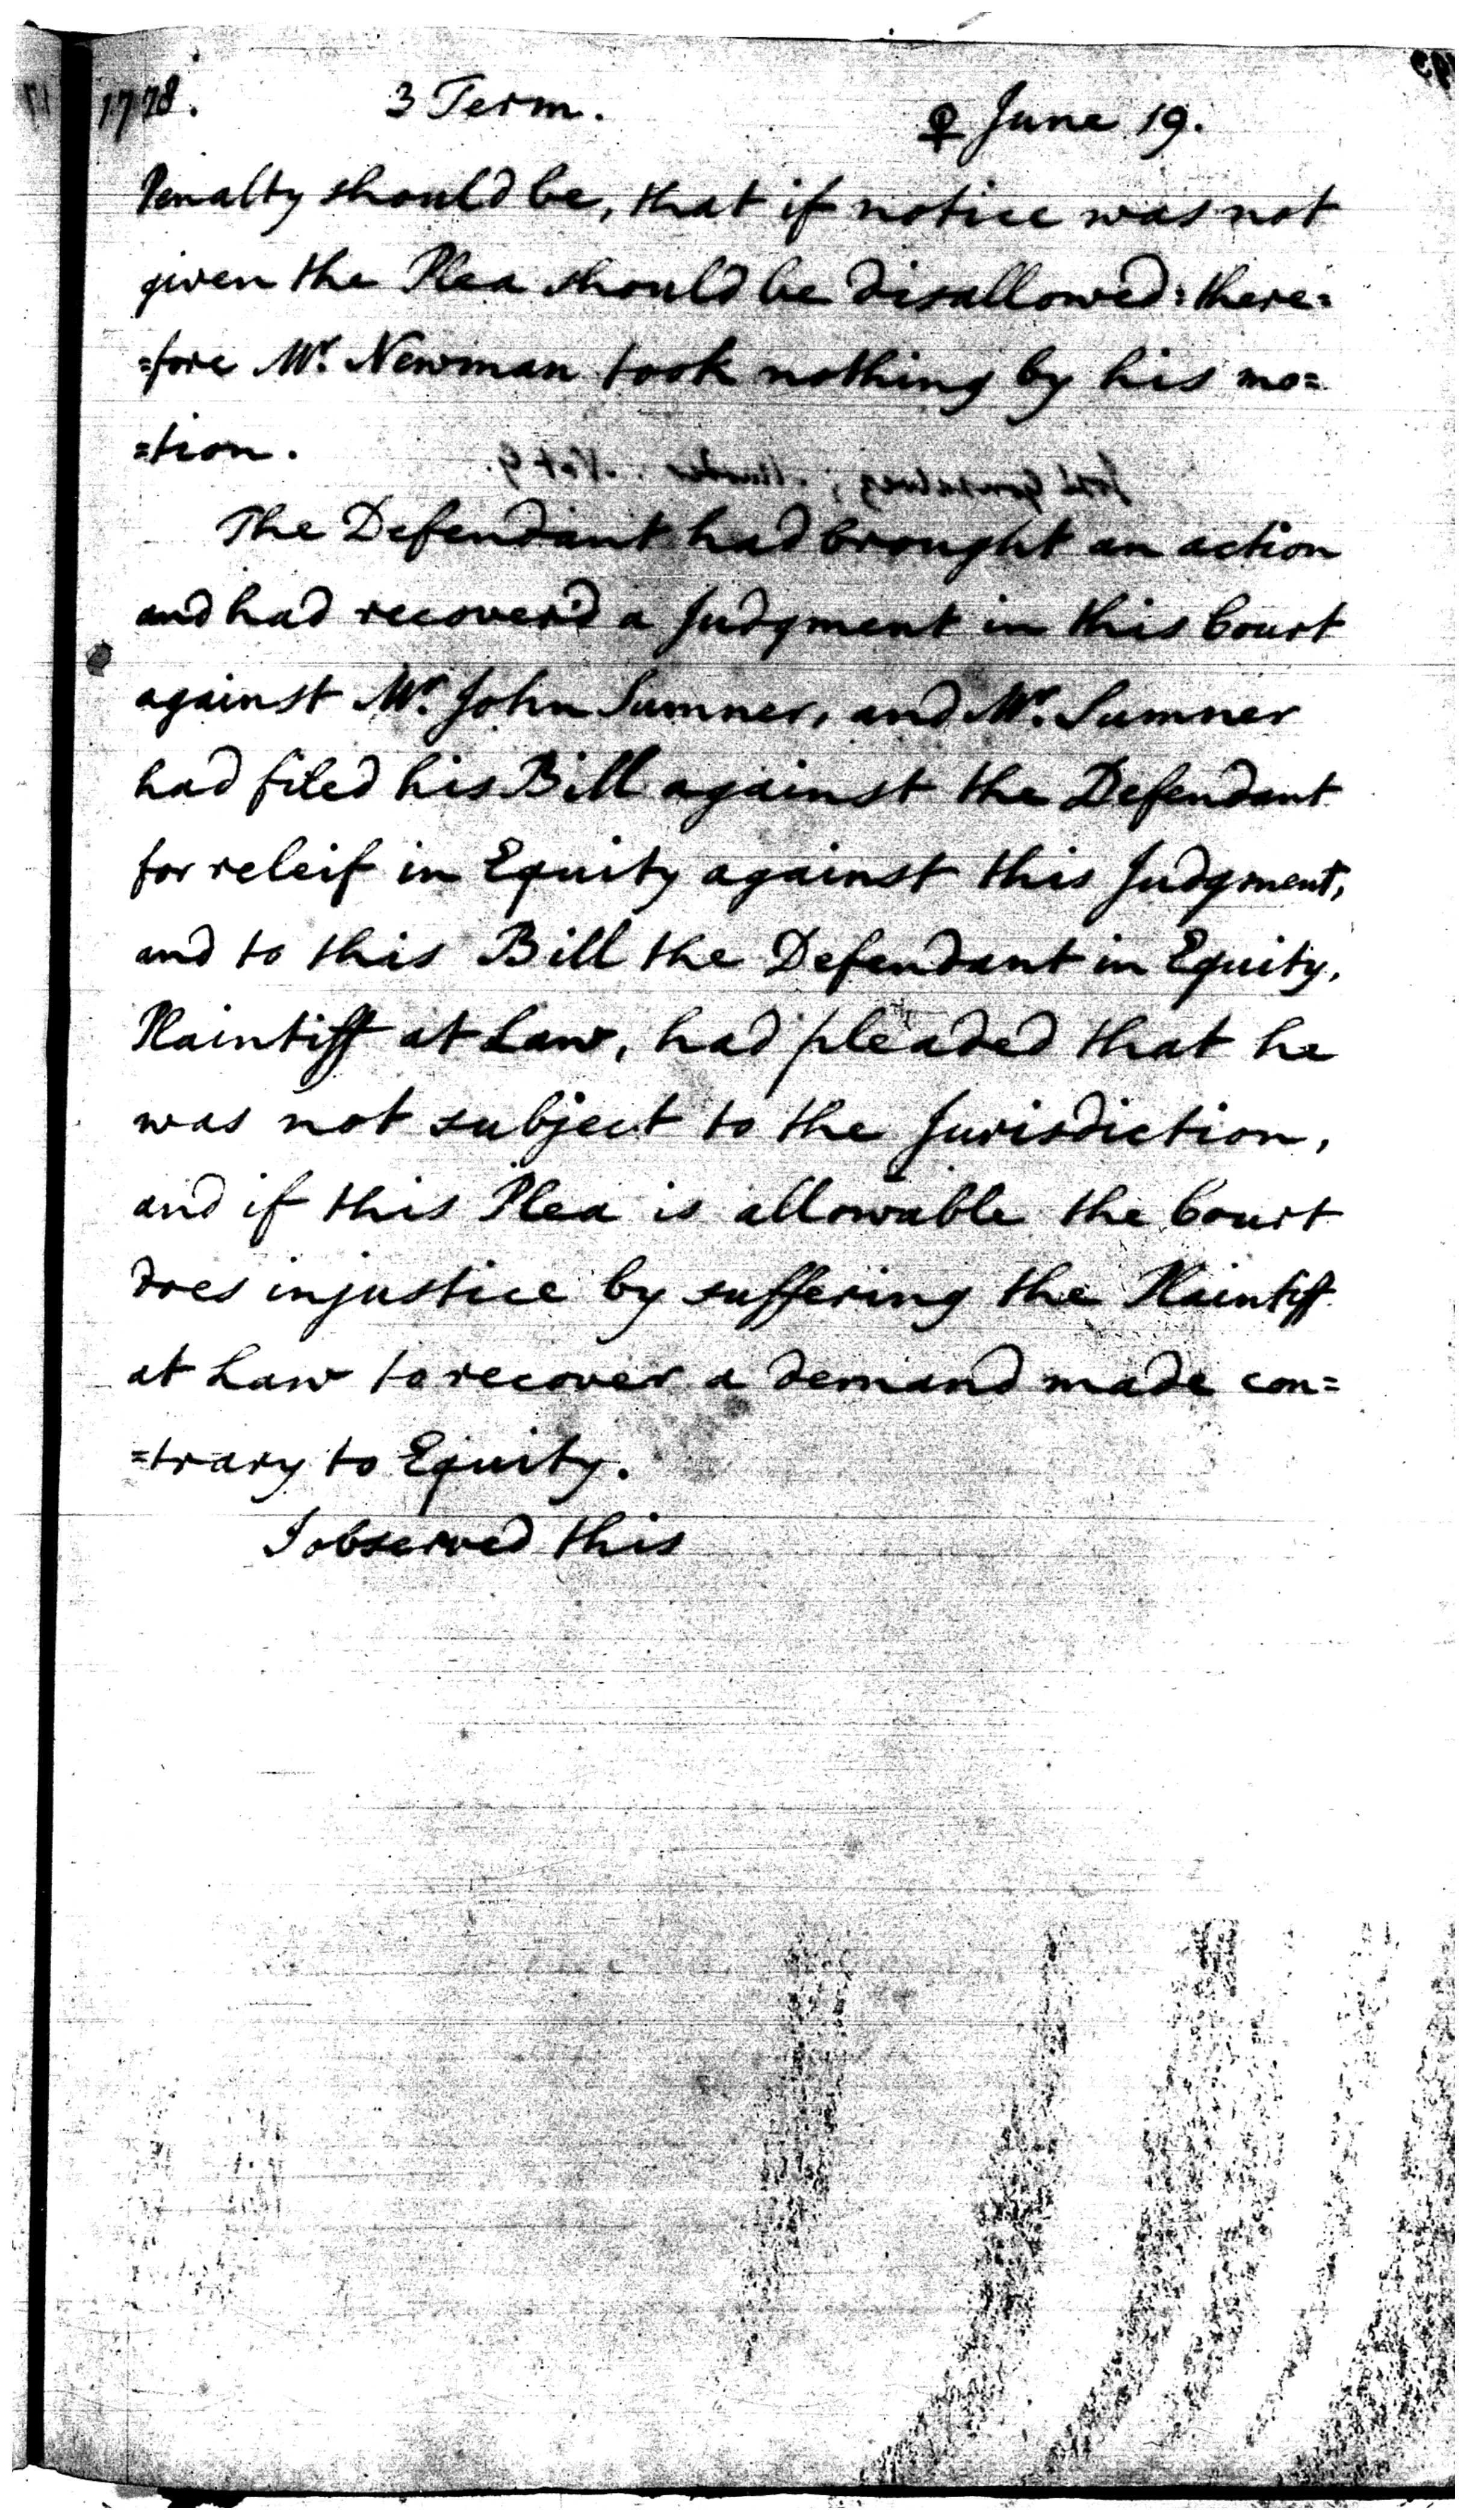 1778. 3 Term. ♀ June 19.
Penalty should be, that if notice was not
given the Plea should be disallowed: there=
=fore Mr. Newman took nothing by his mo=
=tion.
The Defendant had brought an action
and had recover'd a Judgment in this Court
against Mr. John Sumner, and Mr. Sumner
had filed his Bill against the Defendant
for releif in Equity against this Judgment,
and to this Bill the Defendant in Equity,
Plaintiff at Law, had pleaded that he
was not subject to the Jurisdiction,
and if this Plea is allowable the Court
does injustice by suffering the Plaintiff
at Law to recover a demand made con=
=trary to Equity.
I observed this